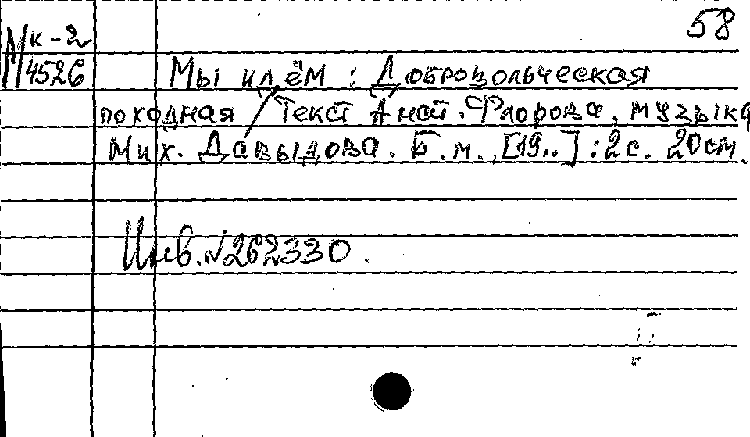 58
Мк-2
4526
Мы идём : Добровольческая
походная / Текст Анат. Флорова, музыка
Мих. Давыдова. Б.м., [19..] : 2с. 20см.
Инв.№262330.